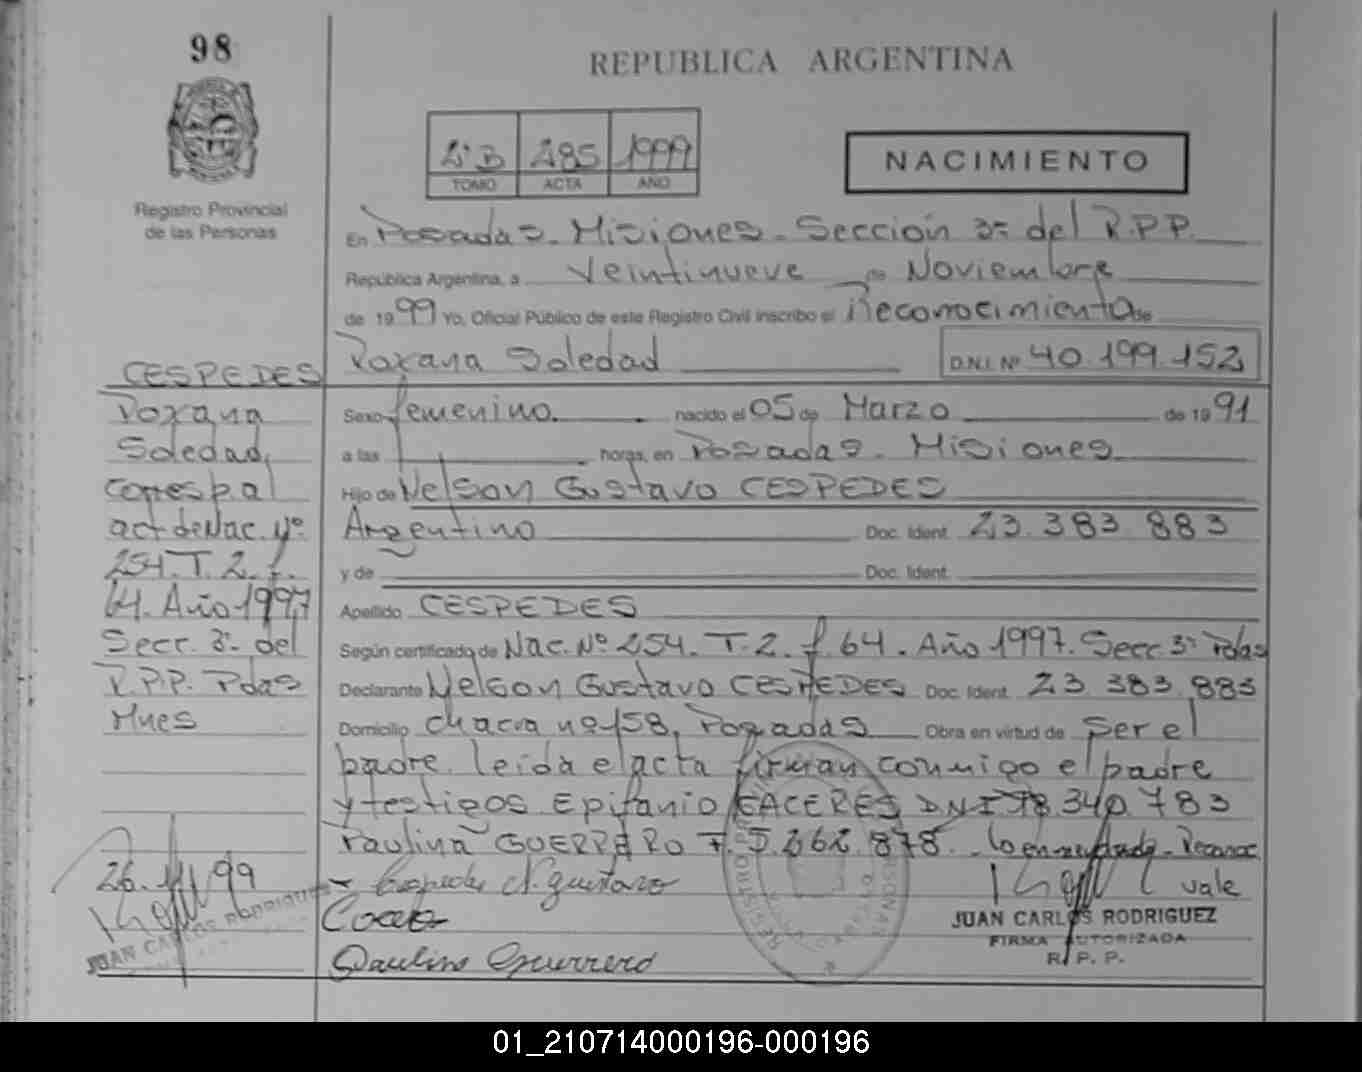 98
REPUBLICA ARGENTINA
2º B 285 1999
TOMO ACTA AÑO
NACIMIENTO
Registro Provincial
de las Personas
En Posadas. Misiones. Sección 3ª del R.P.P.
República Argentina, a Veintinueve de Noviembre
de 1999 Yo, Oficial Público de este Registro Civil inscribo el Reconocimiento de
Roxana Soledad D.N.I. Nº 40.199.152
CESPEDES
Roxana
Soledad,
corresp. al
act de Nac. Nº
254. T. 2. f.
64. Año 1997
Secc. 3ª del
R.P.P. Pdas
Mnes
Sexo femenino. nacido el 05 de Marzo de 1991
a las horas, en Posadas. Misiones
Hijo de Nelson Gustavo CESPEDES
Argentino Doc. Ident. 23.383.883
y de Doc. Ident.
Apellido CESPEDES
Según certificado de Nac. Nº 254. T. 2. f. 64. Año 1997. Secc. 3ª Pdas
Declarante Nelson Gustavo CESPEDES Doc. Ident. 23 383.883
Domicilio chacra nº 158, Posadas Obra en virtud de ser el
padre. leida el acta firman conmigo el padre
y testigos Epifanio CACERES DNI 18.340.783
Paulina GUERRERO F. 5.262.878. Lo enmendado. Reconoc
vale
26.11.99
JUAN CARLOS RODRIGUEZ
Cespedes N. gustavo
Paulina Guerrero
JUAN CARLOS RODRIGUEZ
FIRMA AUTORIZADA
R. P. P.
01_210714000196-000196